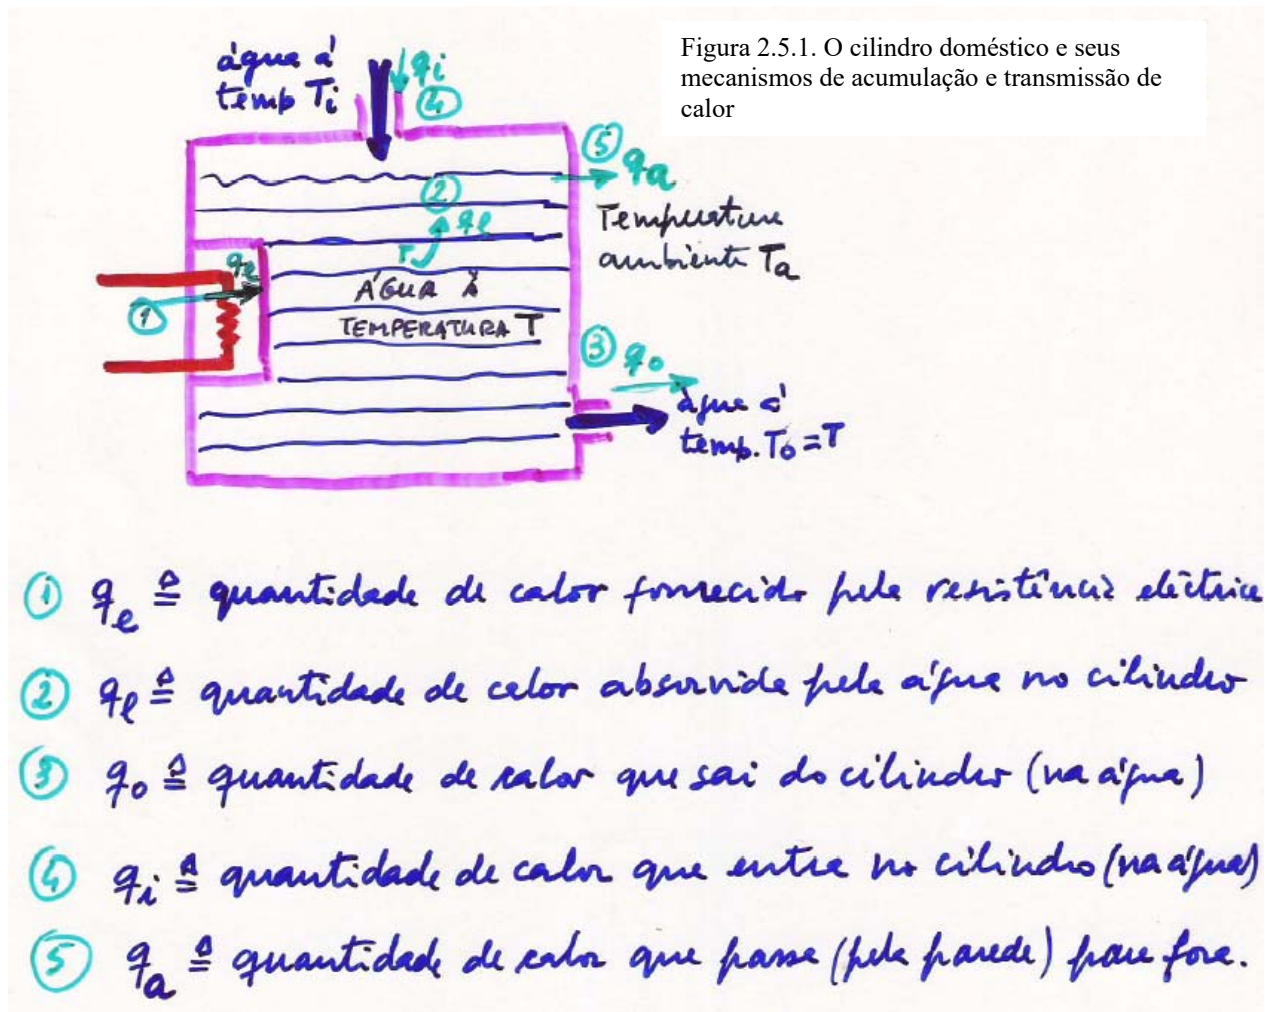 Figura 2.5.1. O cilindro doméstico e seus
mecanismos de acumulação e transmissão de
calor
água à
temp Ti
qi
4
5 qa
Temperatura
ambiente Ta
2
ql
T
qe
1
ÁGUA À
TEMPERATURA T
3 qo
água à
temp. To = T
1 qe ≙ quantidade de calor fornecido pela resistência eléctrica
2 ql ≙ quantidade de calor absorvida pela água no cilindro
3 qo ≙ quantidade de calor que sai do cilindro (na água)
4 qi ≙ quantidade de calor que entra no cilindro (na água)
5 qa ≙ quantidade de calor que passa (pela parede) para fora.